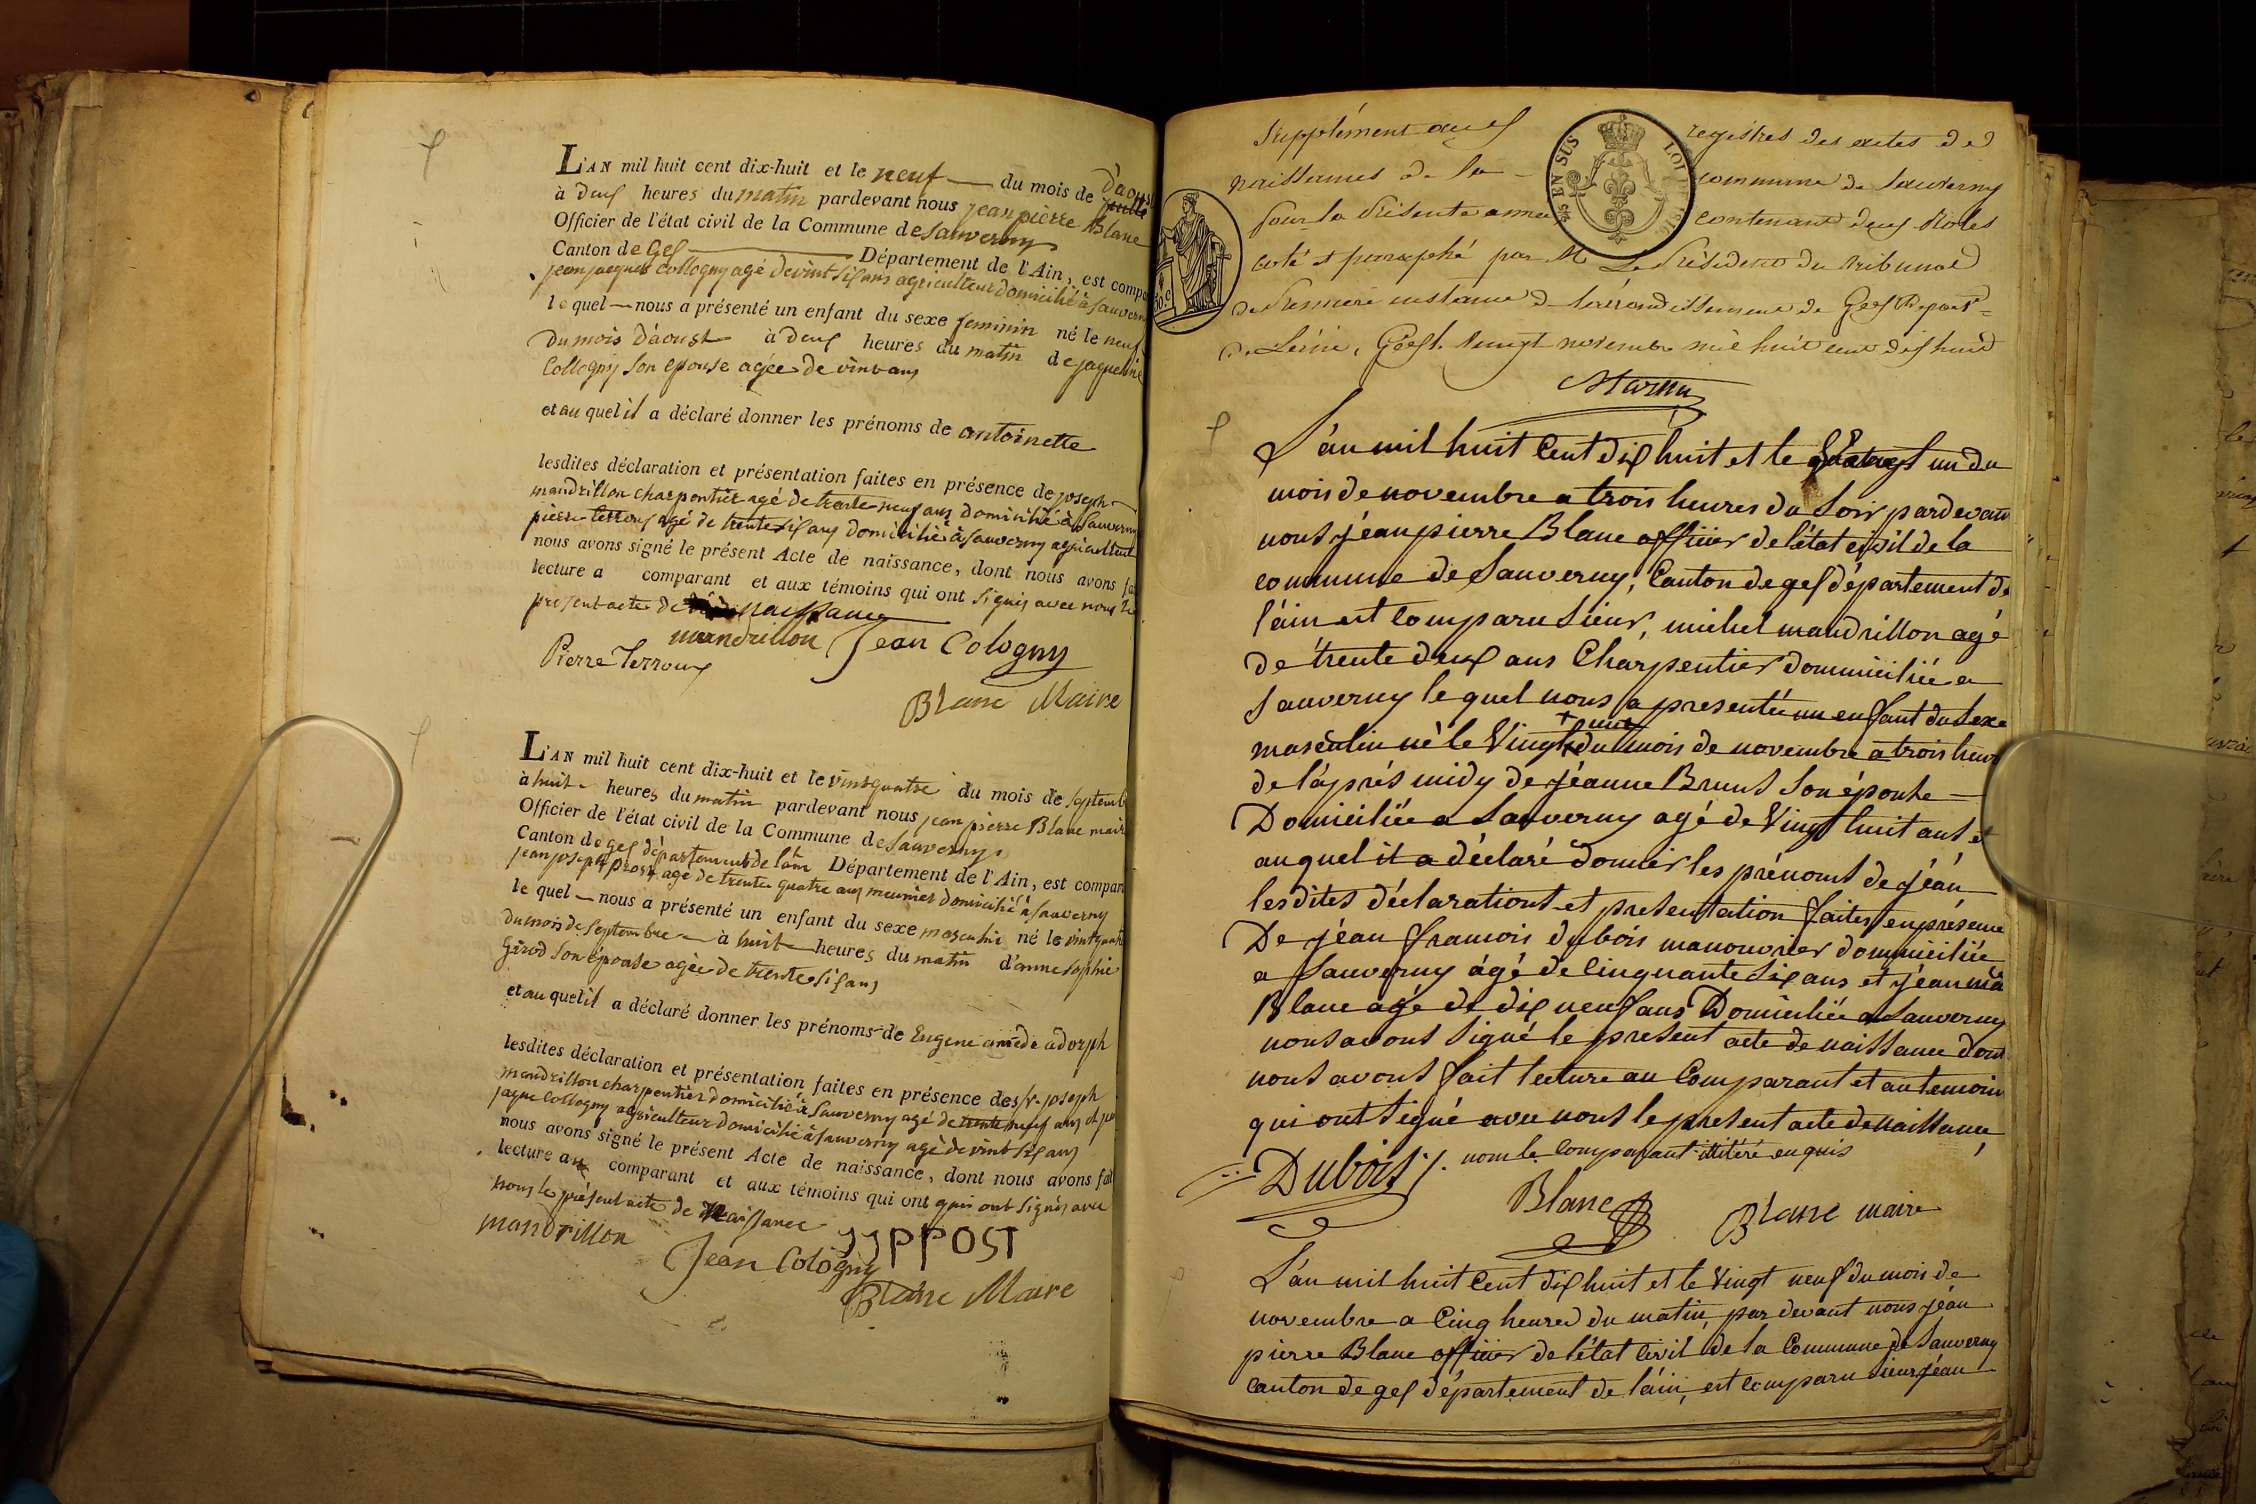 L'AN mil huit cent dix-huit et le neuf du mois de d'aoust
à deux heures du matin pardevant nous jean pierre Blanc
Officier de l'état civil de la Commune de Sauverny
Canton de Gex Département de l'Ain, est compa
jean jaques Collogny agé de vint six ans agriculteur domicilié à Sauverny
le quel nous a présenté un enfant du sexe feminin né le neuf
du mois d'aoust à deux heures du matin de jaqueline
Collogny son epouse agée de vint ans
et au quel il a déclaré donner les prénoms de antoinette
lesdites déclaration et présentation faites en présence de joseph
mandrillon charpentier agé de trente neuf ans domicilié à Sauverny
pierre terroux agé de trente six ans domicilié à Sauverny agriculteur
nous avons signé le présent Acte de naissance, dont nous avons fai
lecture a comparant et aux témoins qui ont signés avec nous le
present acte de naissance
mandrillon Jean Cologny
Pierre Terroux
Blanc Maire
L'AN mil huit cent dix-huit et le vint quatre du mois de septemb
à huit heures du matin pardevant nous jean pierre Blanc mair
Officier de l'état civil de la Commune de Sauverny
Canton de gex département de lain Département de l'Ain, est compar
jean joseph prost agé de trente quatre ans meunier domicilié à Sauverny
le quel nous a présenté un enfant du sexe masculin né le vint quatr
du mois de septembre à huit heures du matin d'anne sophie
Girod son épouse agée de trente six ans
et au quel il a déclaré donner les prénoms de Eugene amede adorph
lesdites déclaration et présentation faites en présence des sr joseph
mandrillon charpentier domicilié à Sauverny agé de trente neuf ans et je
jaque Collogny agriculteur domicilié à Sauverny agé de vint six ans
nous avons signé le présent Acte de naissance, dont nous avons fait
lecture au comparant et aux témoins qui ont qui ont signés avec
nous le présent acte de naissance
mandrillon JJPPOST
Jean Cologny
Blanc Maire
Supplément aux registres des actes de
naissances de la commune de Sauverny
pour la présente année contenant deux Roles
coté et paraphé par M Le Président du tribunal
de première instance de larrondissement de Gex Depart=
de Lain, Gex le vingt novembre mil huit cent dix huit
EN SUS
L'an mil huit Cent dix huit et le Vingt un du
mois de novembre a trois heures du Soir pardevan
nous jean pierre Blanc officier de l'état civil de la
commune de Sauverny, Canton de gex département de
l'ain est Comparu Sieur, michel mandrillon agé
de trente deux ans Charpentier dommiciliée a
Sauverny le quel nous a presentée un enfant du Sexe
masculin né le Vingt + une du mois de novembre a trois heur
de l'après midy de jéanne Bruns Son épouse
Domiciliée a Sauverny agé de Vingt huit ans et
au quel il a déclaré donner les prénoms de jéan
les dites déclarations et presentation faites en présence
De jéan francois dubois manouvrier dommiciliée
a Sauverny ágé de Cinquante Six ans et jéan ma
Blanc agé de dix neuf ans Domiciliée a Sauverny
nous avons Signé le present acte de naissance dont
nous avons fait lecture au Comparant et au temoin
qui ont Signé avec nous le present acte de naissance,
non le Comparant illitéré enquis
Dubois
Blanc Blanc maire
L'an mil huit Cent dix huit et le Vingt neuf du mois de
novembre a Cinq heures du matin, par devant nous jéan
pierre Blanc officier de l'état Civil de la Commune de Sauverny
canton de gex département de l'ain, est comparu Sieur jéan